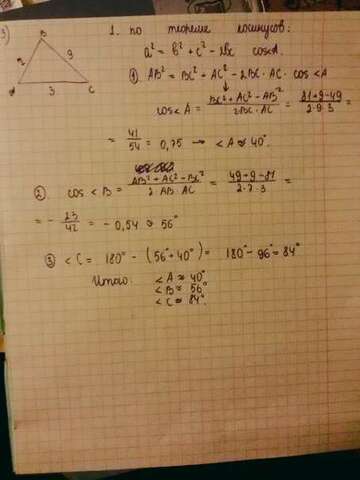 3)
B
7 9
A 3 C
1. по теореме косинусов:
a² = b² + c² - 2bc cosA.
① AB² = BC² + AC² - 2BC · AC · cos <A
cos<A = (BC² + AC² - AB²)/(2BC · AC) = (81+9-49)/(2·9·3) =
= 41/54 = 0,75 → <A ≈ 40°.
② cos <B = (AB² + AC² - BC²)/(2 AB · AC) = (49+9-81)/(2·7·3) =
= - 23/42 = - 0,54 ≈ 56°
③ <C = 180° - (56° + 40°) = 180° - 96° = 84°
Итого: <A ≈ 40°
<B ≈ 56°
<C ≈ 84°.